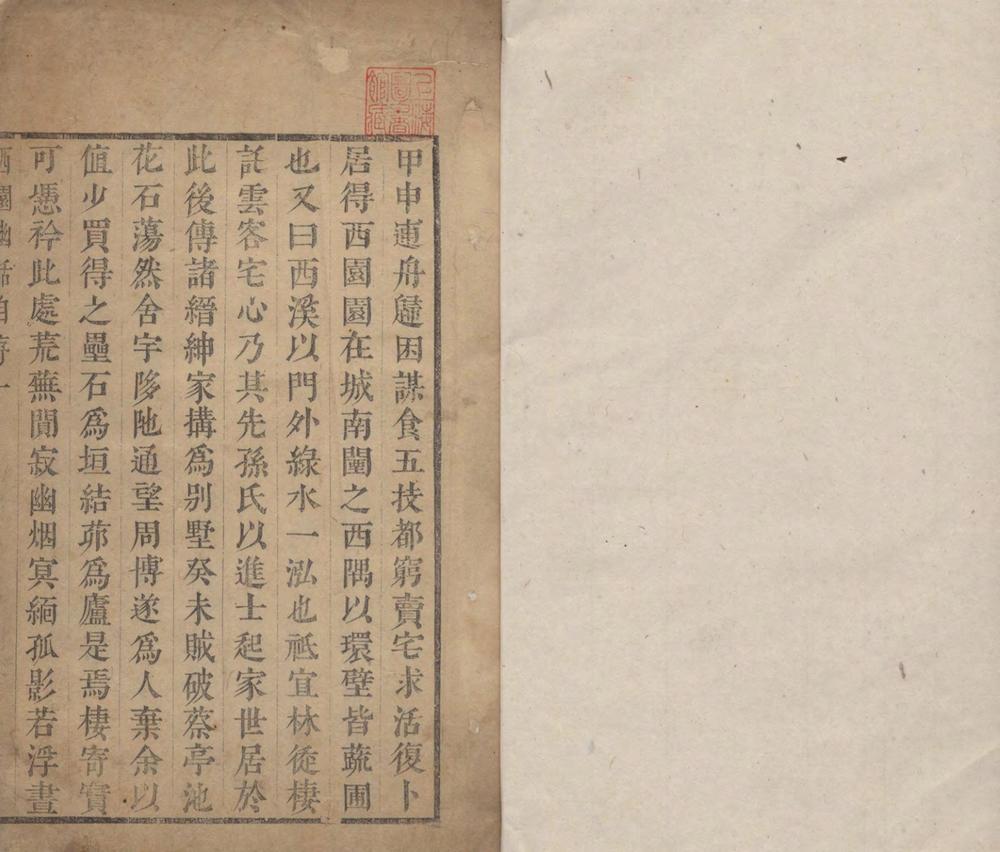 甲申連舟歸困謀食五技都窮賣宅求活復卜
居得西園園在城南闉之西隅以環壁皆蔬圃
也又曰西溪以門外綠水一泓也祗宜林從棲
託雲客宅心乃其先孫氏以進士起家世居於
此後傳諸縉紳家搆爲别墅癸未賊破蔡亭池
花石蕩然舍宇陊阤通望周博遂爲人棄余以
值少買得之壘石爲垣結茆爲廬是焉棲寄實
可慿衿此處荒蕪閴寂幽烟寘緬孤影若浮晝
西園幽話自序一
上海圖書館藏